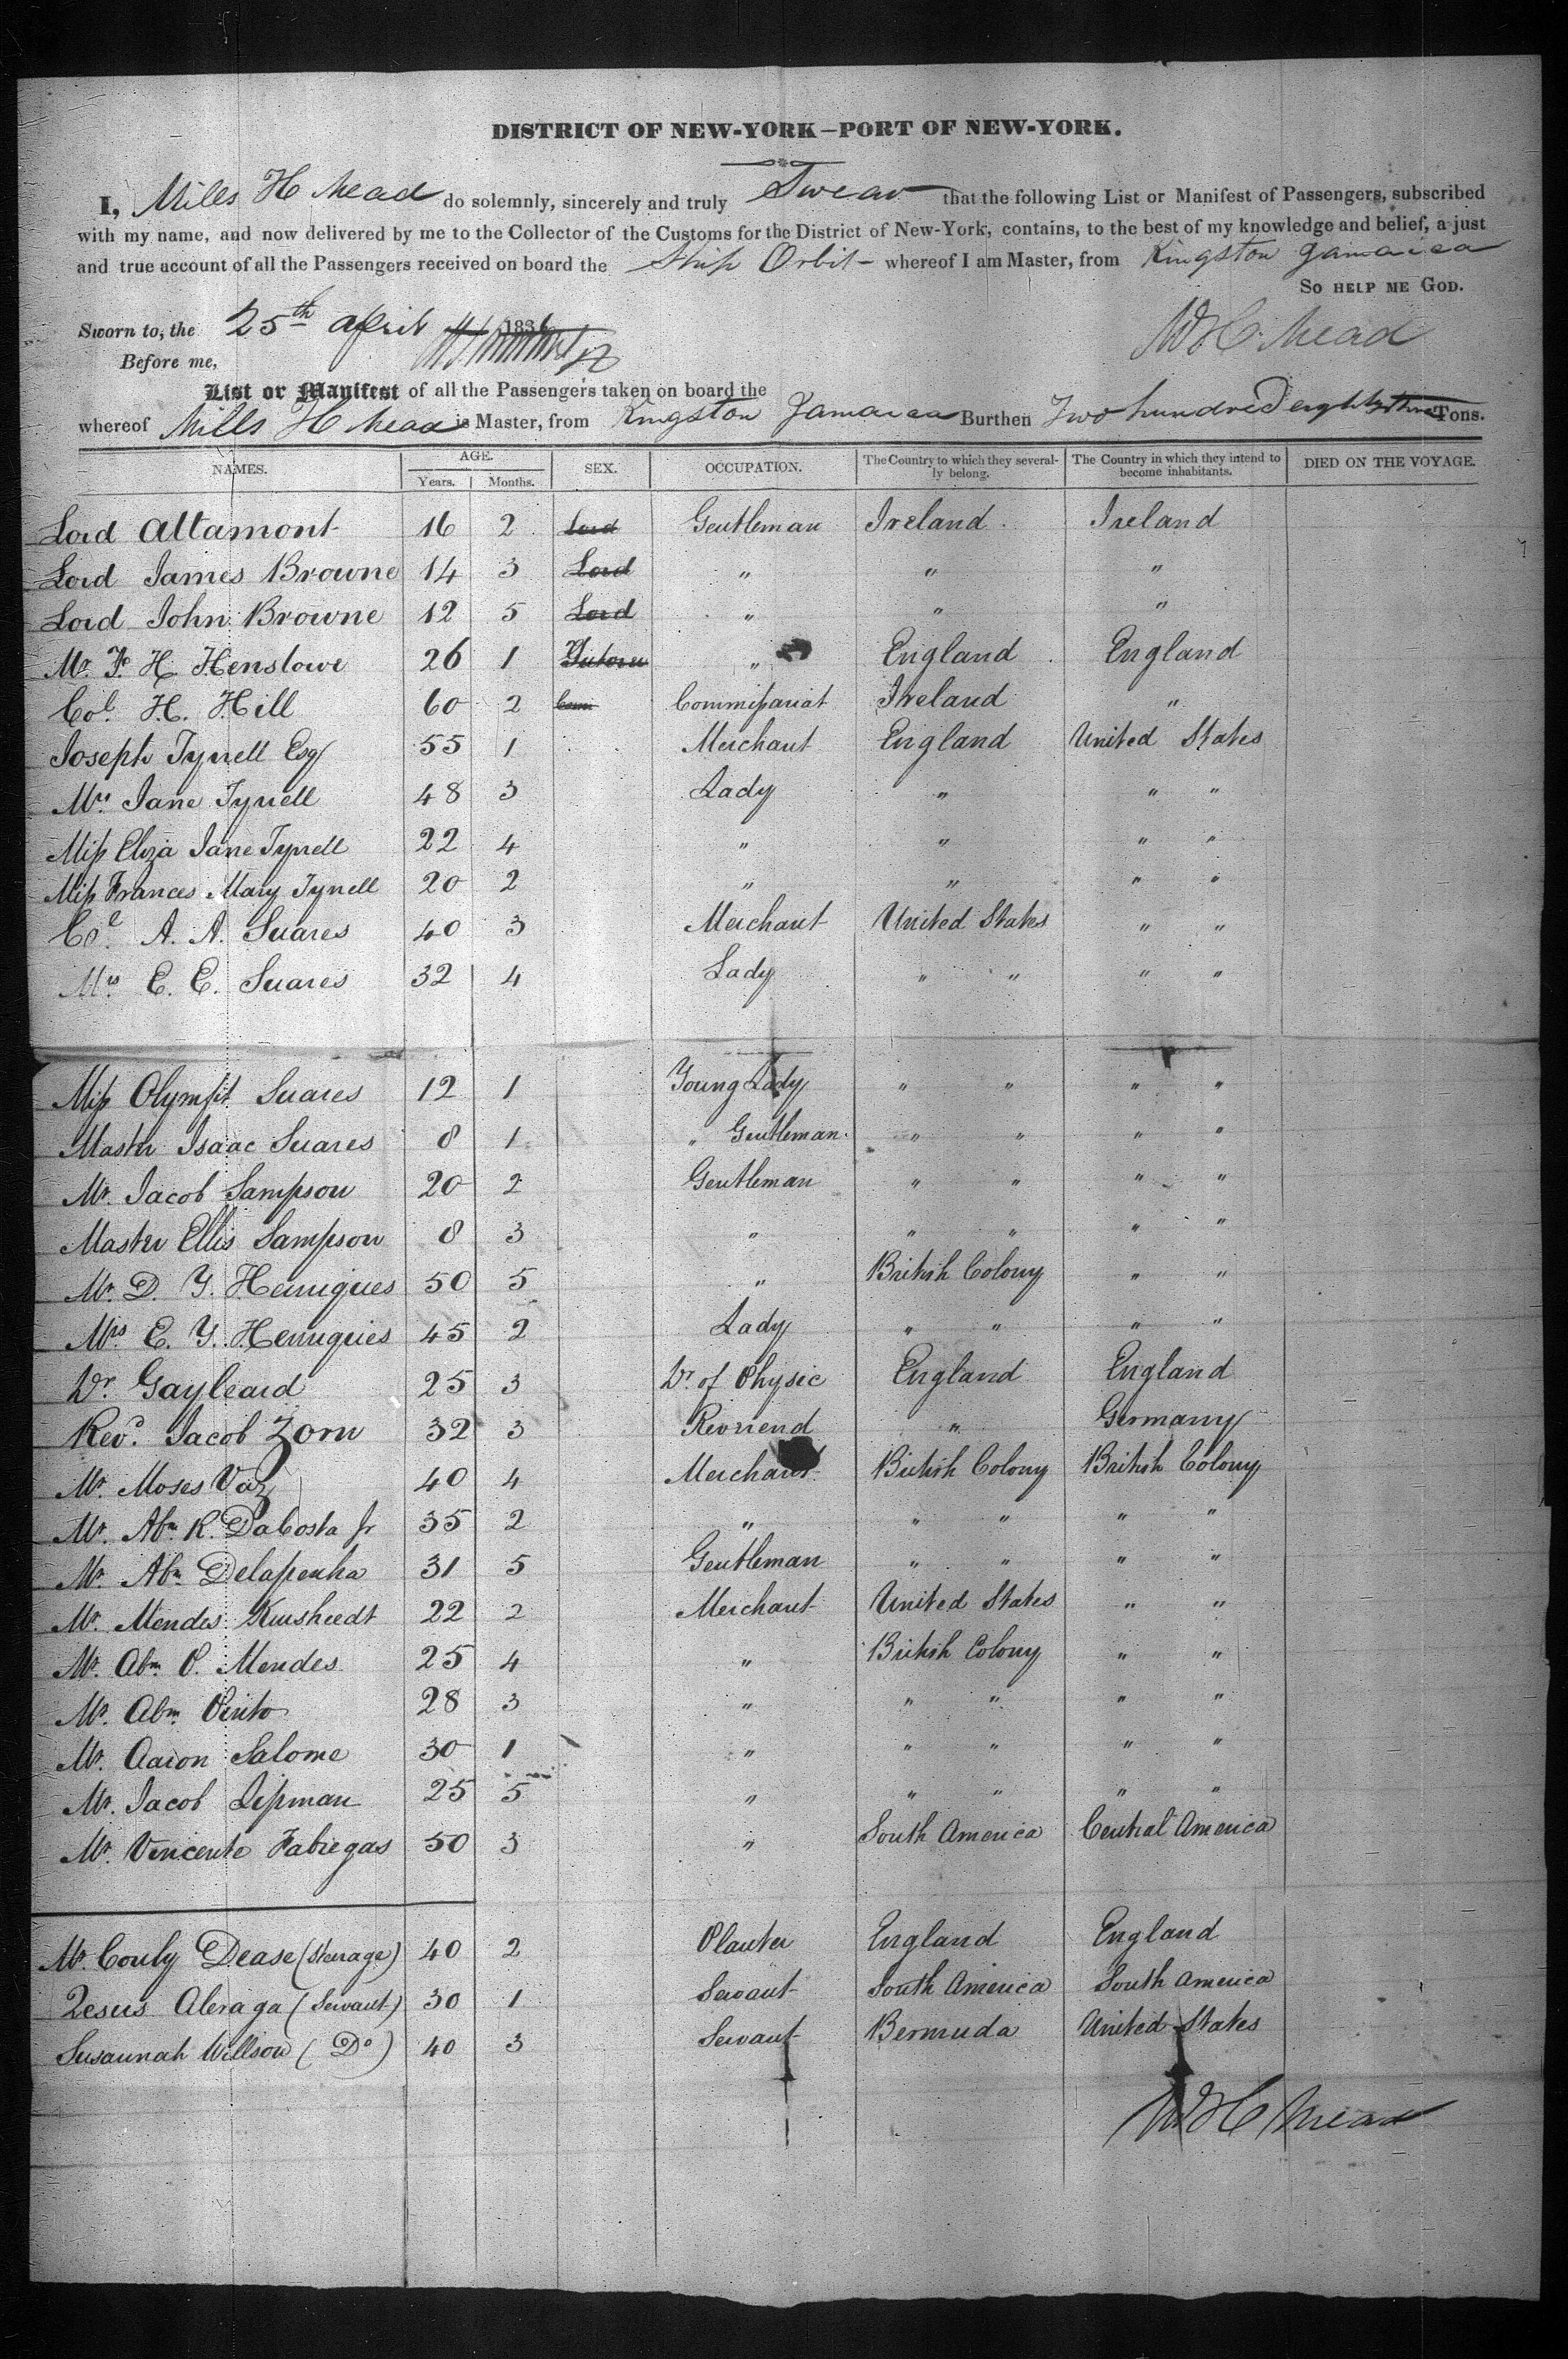 DISTRICT OF NEW-YORK—PORT OF NEW-YORK.
I, Mills H Mead do solemnly, sincerely and truly Swear that the following List or Manifest of Passengers, subscribed
with my name, and now delivered by me to the Collector of the Customs for the District of New-York, contains, to the best of my knowledge and belief, a just
and true account of all the Passengers received on board the Ship Orbit whereof I am Master, from Kingston Jamaica
So help me God.
Sworn to, the 25th april 183
M H Mead
Before me,
List or Manifest of all the Passengers taken on board the
whereof Mills H Mead is Master, from Kingston Jamaica Burthen Two hundred eighty three Tons.
NAMES. AGE. Years. Months. SEX. OCCUPATION. The Country to which they severally belong. The Country in which they intend to become inhabitants. DIED ON THE VOYAGE.
Lord Altamont 16 2 Lord Gentleman Ireland Ireland
Lord James Browne 14 3 Lord " " "
Lord John Browne 12 5 Lord " " "
Mr. F. H. Henslowe 26 1 " England England
Col. H. Hill 60 2 Commissariat Ireland "
Joseph Tyrrell Esq 55 1 Merchant England United States
Mrs Jane Tyrrell 48 3 Lady " " "
Miss Eliza Jane Tyrrell 22 4 " " " "
Miss Frances Mary Tyrrell 20 2 " " " "
Col. A. A. Suares 40 3 Merchant United States " "
Mrs E. E. Suares 32 4 Lady " " " "
Miss Suares 12 1 Young Lady " " " "
Master Isaac Suares 8 1 " Gentleman " " " "
Mr. Jacob Sampson 20 2 Gentleman " " " "
Master Ellis Sampson 8 3 " " " " "
Mr. D. Y. Henriques 50 5 " British Colony " "
Mrs E. Y. Henriques 45 2 Lady " " " "
Dr. Gayleard 25 3 Dr. of Physic England England
Revd. Jacob Zorn 32 3 Reverend " Germany
Mr. Moses Vaz 40 4 Merchant British Colony British Colony
Mr. Abm. R. DaCosta Jr 35 2 " " " " "
Mr. Abm. Delapenha 31 5 Gentleman " " " "
Mr. Mendes Kursheedt 22 2 Merchant United States " "
Mr. Abm. P. Mendes 25 4 " British Colony " "
Mr. Abm. Pinto 28 3 " " " " "
Mr. Aaron Salome 30 1 " " " " "
Mr. Jacob Lipman 25 5 " " " " "
Mr. Vincente Fabregas 50 3 " South America Central America
Mr. Dease (Steerage) 40 2 Planter England England
Jesus (Servant) 30 1 Servant South America South America
Susannah Willson (Do) 40 3 Servant Bermuda United States
M H Mead